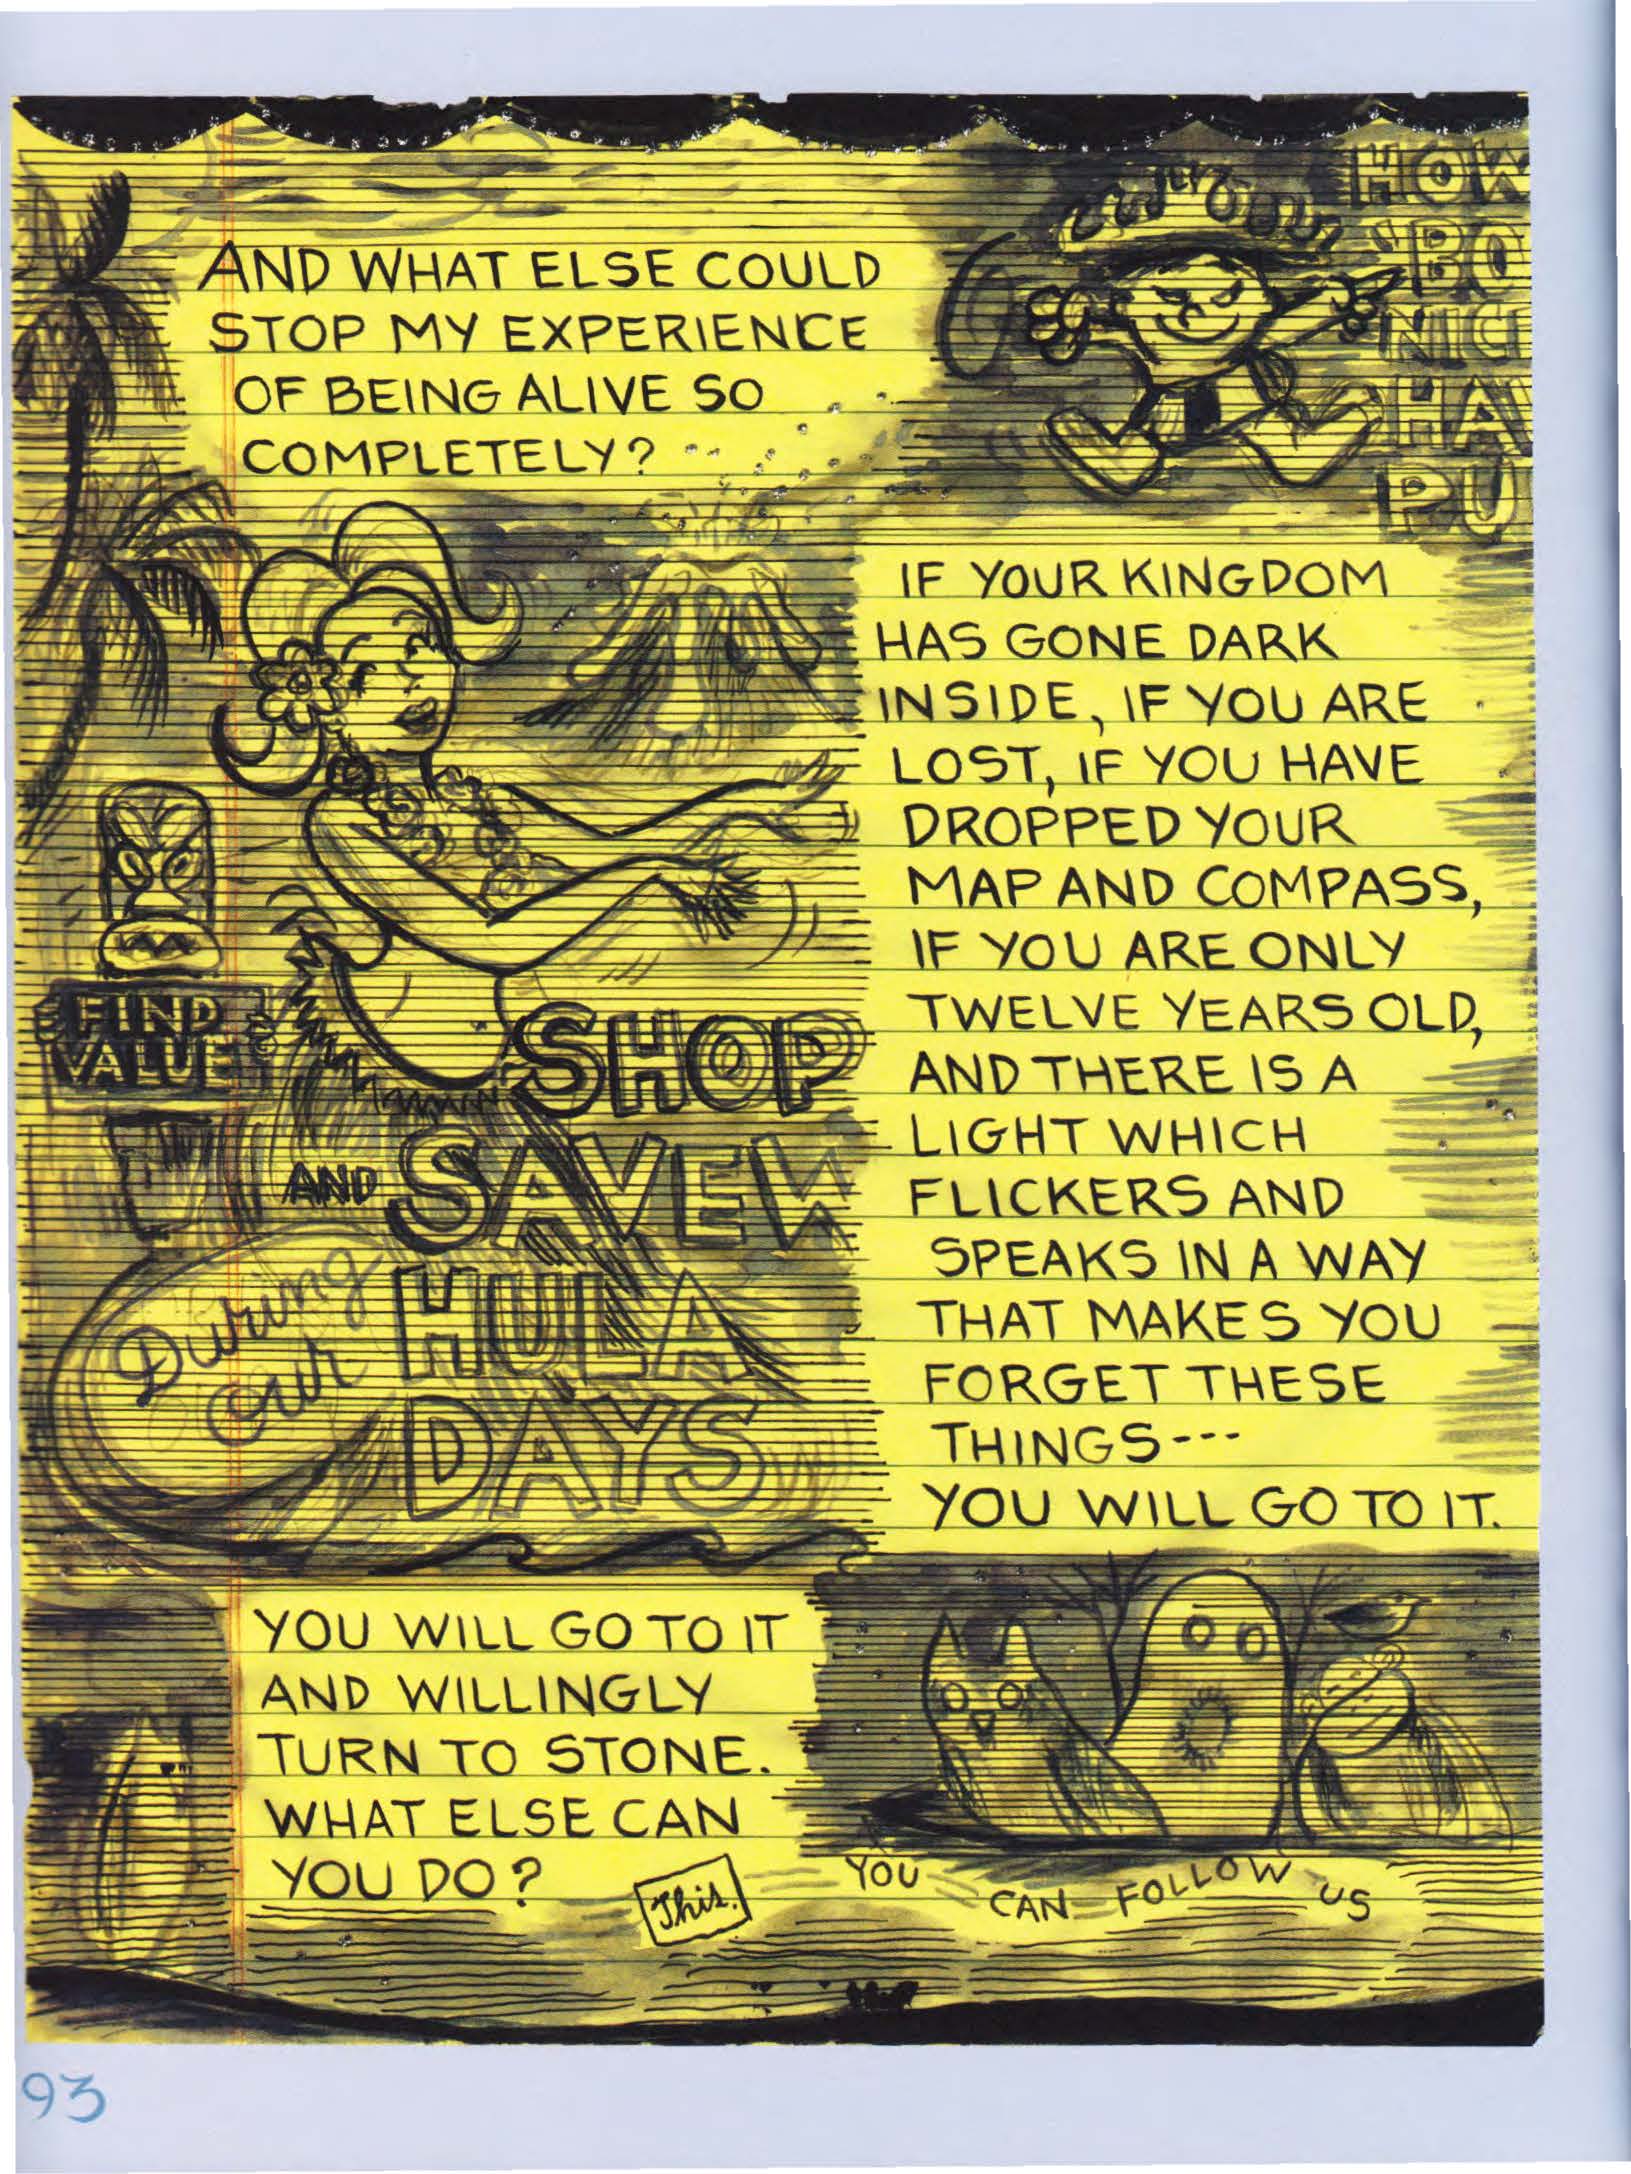 AND WHAT ELSE COULD
STOP MY EXPERIENCE
OF BEING ALIVE SO
COMPLETELY?
HOW
'BO
NICE
HA
PU
IF YOUR KINGDOM
HAS GONE DARK
INSIDE, IF YOU ARE
LOST, IF YOU HAVE
DROPPED YOUR
MAP AND COMPASS,
IF YOU ARE ONLY
TWELVE YEARS OLD,
AND THERE IS A
LIGHT WHICH
FLICKERS AND
SPEAKS IN A WAY
THAT MAKES YOU
FORGET THESE
THINGS---
YOU WILL GO TO IT.
FIND
VALUE
SHOP
AND SAVE
During
our
HULA
DAYS
YOU WILL GO TO IT
AND WILLINGLY
TURN TO STONE.
WHAT ELSE CAN
YOU DO?
This.
YOU CAN FOLLOW US
93